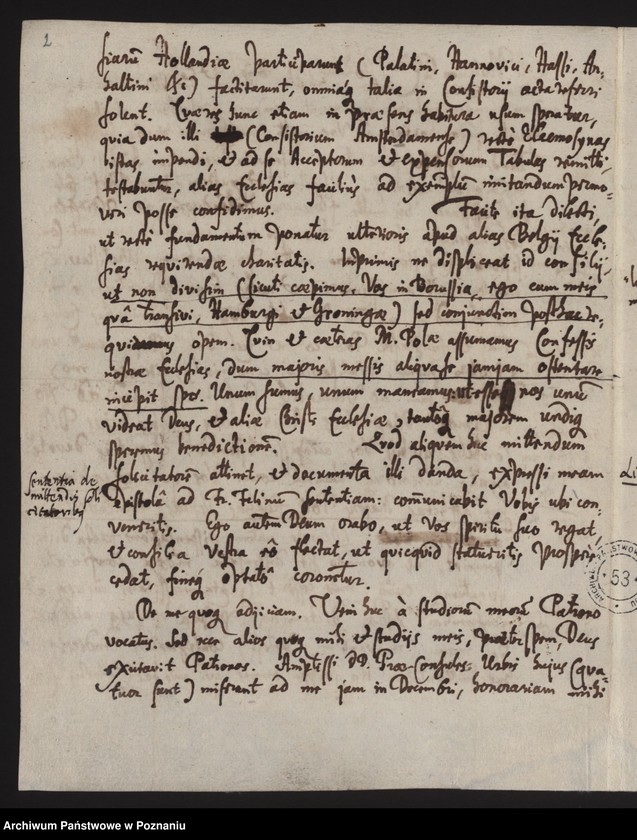 2
siarum Hollandiæ participarunt (Palatini, Hannovici, Hassi, An-
haltini &c) factitarunt, omniaq talia in Consistorij acta referri
solent. Quæ res hunc etiam in præsens habitura usum speratur,
quia dum illi (Consistorium Amstendamense) rectè Elaemosynas
istas impendi, et ad se Acceptorum et expensorum Tabulas remitti
testabuntur, alias Ecclesias facilius ad exemplum imitandum permo-
veri posse confidimus. Facite ita dilecti,
ut rectè fundamentum ponatur ulterioris apud alias Belgij Eccle-
sias requirendæ charitatis. Inprimis ne displiceat id consilij,
ut non divisim (sicuti cæpimus, Vos in Borussia, ego cum meis
quâ transivi, Hamburgi et Groningæ) sed conjunctim posthac re-
quiramus opem. Quin et cæteras M. Polæ assumamus Confessis
nostræ Ecclesias, dum majoris messis aliqua se jamjam ostentare
incipit spes. Unum sumus, unum maneamus: ut nos unum
videat Deus, et aliæ Christi Ecclesiæ, tantóq majorem undiq
speremus benedictionem. Quod aliquem huc mittendum
Sententia de
mittendis solli
citatoribus
solicitatorem attinet, et documenta illi danda, expressi meam
Epistolâ ad Fr. Felinum sententiam: communicabit Vobis ubi con-
veneritis. Ego autem Deum orabo, ut Vos spiritu suo regat,
et consilia vestra eô flectat, ut quicquid statueritis prosperè
cedat, fineq optatô coronetur.
De me quoq adjiciam. Veni huc à studiorum meorum Patrono
vocatus. Sed ecce alios quoq mihi et studijs meis, præter spem, Deus
excitavit Patronos. Amplissi DD. Præ-Consules Urbis hujus (qua-
tuor sunt) miserunt ad me jam in Decembri, honorariam mihi
53
Archiwum Państwowe w Poznaniu